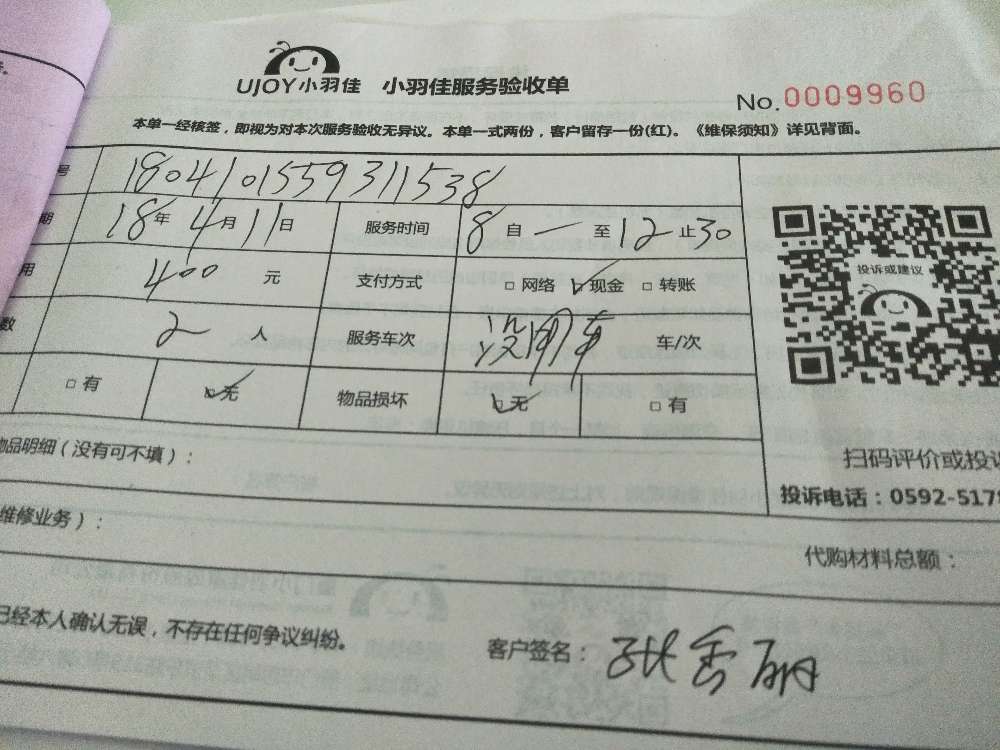 UJOY小羽佳 小羽佳服务验收单
No.0009960
本单一经核签，即视为对本次服务验收无异议。本单一式两份，客户留存一份(红)。《维保须知》详见背面。
号 1804101559311538
期 18年4月11日 服务时间 8自一至12止30
用 400元 支付方式 □网络 ☑现金 □转账
数 2人 服务车次 车/次
□有 ☑无 物品损坏 ☑无 □有
投诉或建议
物品明细（没有可不填）：
扫码评价或投诉
投诉电话：0592-5178
维修业务）：
代购材料总额：
已经本人确认无误，不存在任何争议纠纷。
客户签名：张雪丽